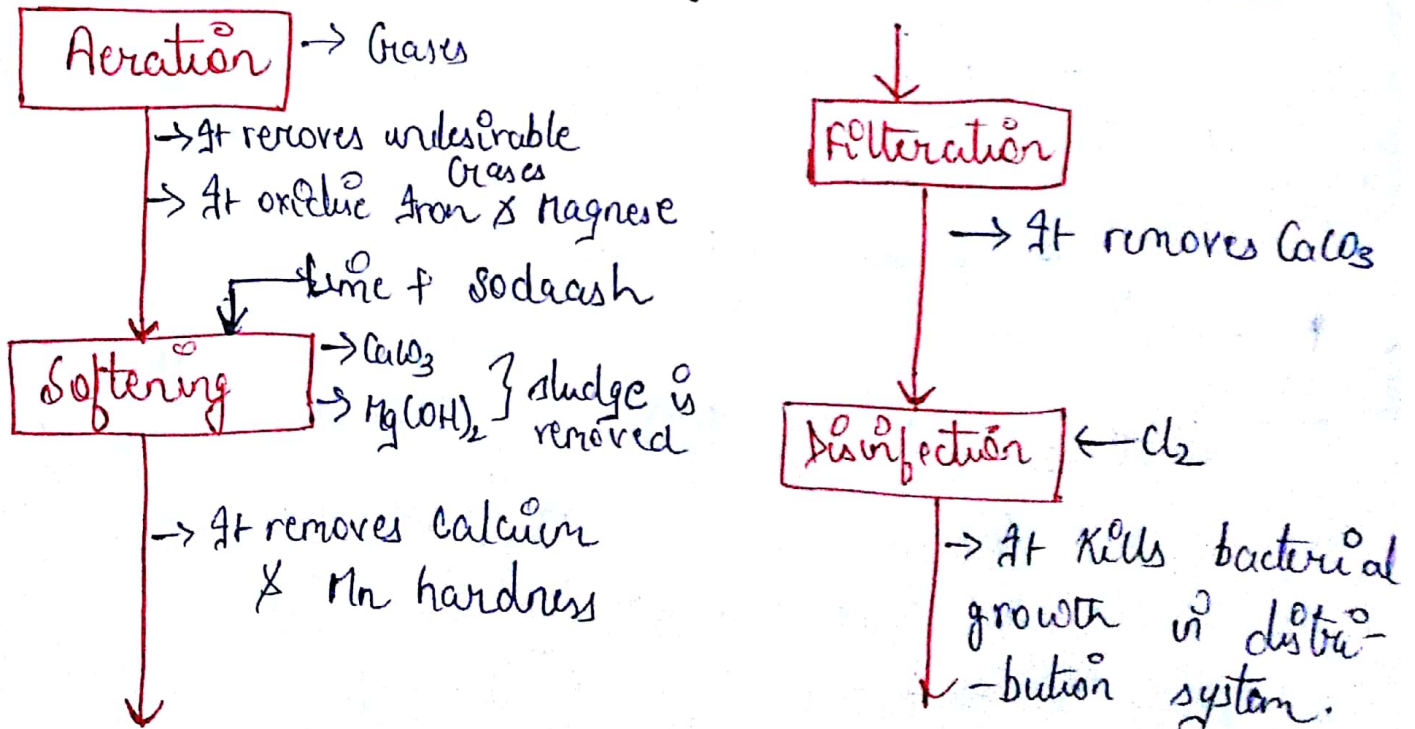 Aeration → Gases
→ It removes undesirable
Gases
→ It oxidise Iron & Magnese
lime + sodaash
Softening
→ CaCO3
→ Mg(OH)2 } sludge is
removed
→ It removes calcium
& Mn hardness
Filteration
→ It removes CaCO3
Disinfection ← Cl2
→ It kills bacterial
growth in distri-
-bution system.